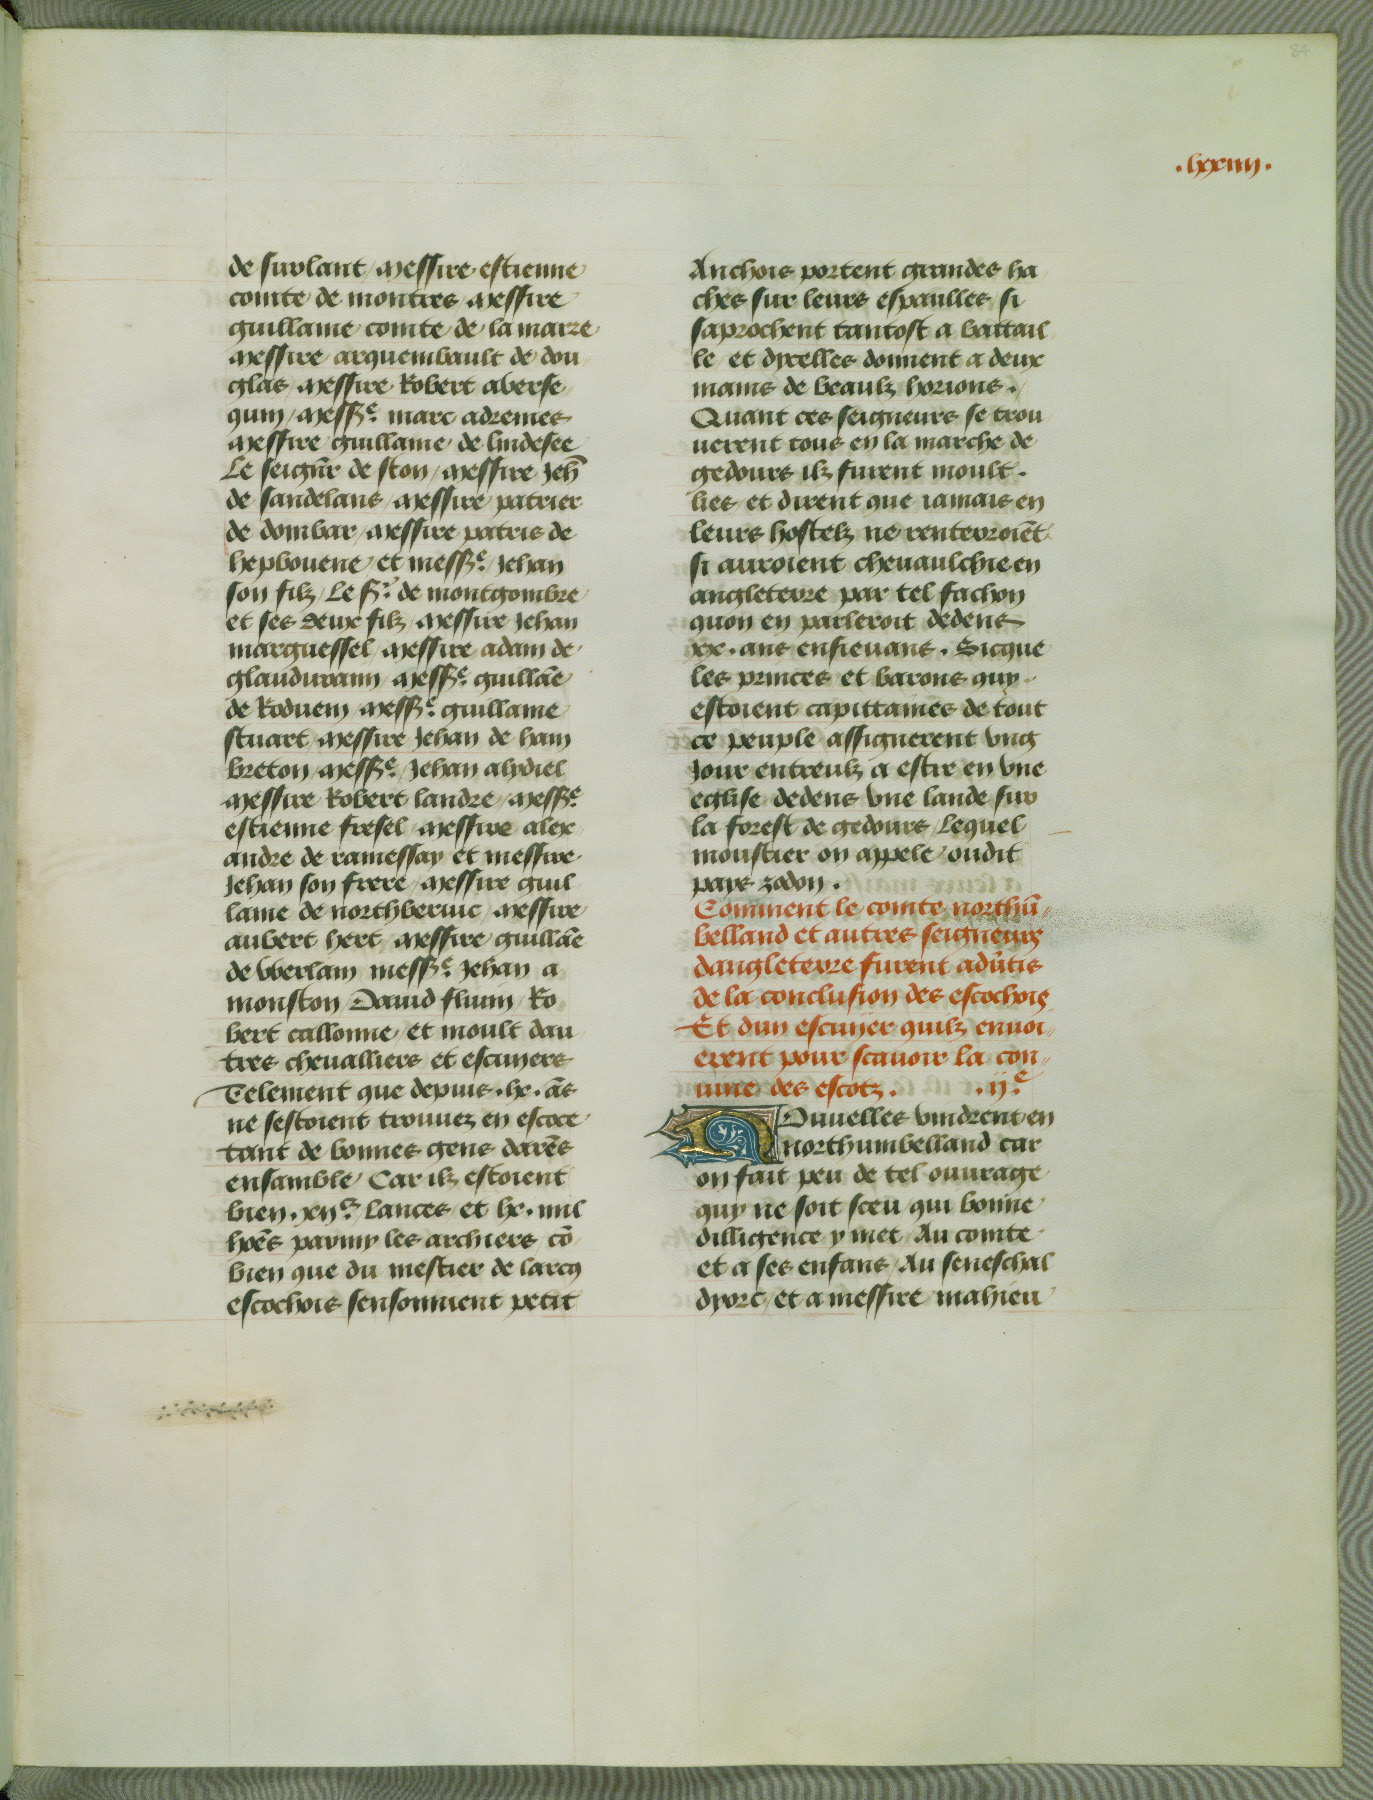 84
.lxxiiij.
de surlant / Messire estienne
comte de montres Messire
guillame comte de la marze
Messire arquembault de dou
glas Messire Robert averse
qum / Messe marc adremes
Messire guillame de lindesee
Le seignr de ston / Messire Jehn
de sandelans Messire patrier
de dombar / Messire patris de
hepbouene et messe Jehan
son filz Le sr de montgombre
et ses deux filz Messire Jehan
marguessel Messire adam de
glaudurann Messe guillae
de Roduem Messe guillame
stuart Messire Jehan de ham
breton Messe Jehan alydiel
Messire Robert landre / Messe
estienne fresel Messire alex
andre de ramessay et messire
Jehan son frere / Messire guil
lame de northberuic Messire
aubert hert Messire guillae
de Werlam messe Jehan a
monston Dauid fluim / Ro
bert callonne et moult dau
tres chevalliers et escuyers
Telement que depuis .lx. as
ne sestoient trouvez en escoce
tant de bonnes gens dares
ensamble Car ilz estoient
bien .xijc. lances et lx. mil
hoes parmy les archiers co
bien que du mestier de larcq
escochois sensonnient petit
Anchois portent grandes ha
ches sur leurs espaulles / si
saprochent tantost a battail
le et dycelles donnent a deux
mains de beaulz horions.
Quant ces seigneurs se trou
uerent tous en la marche de
gedours ilz furent moult
lies et dirent que iamais en
leurs hostelz ne renteroiet
si auroient cheuaulchie en
angleterre par tel fachon
quon en parleroit dedens
xx. ans ensieuans. Sicque
les princes et barons quy
estoient capittaines de tout
ce peuple assignerent ung
Jour entreulz a estre en vne
eglise dedens vne lande sur
la forest de gedours Lequel
moustier on appele oudit
pays zadon.
Comment le comte northu
belland et autres seigneurs
dangleterre furent adutis
de la conclusion des escochois
Et dun escuyer quilz enuoi
erent pour scauoir la con
uine des escotz. .ije
Nouuelles vindrent en
northumbelland car
on fait peu de tel ouurage
quy ne soit sceu qui bonne
dilligence y met / Au comte
et a ses enfans / Au seneschal
dyorc / et a messire mahieu